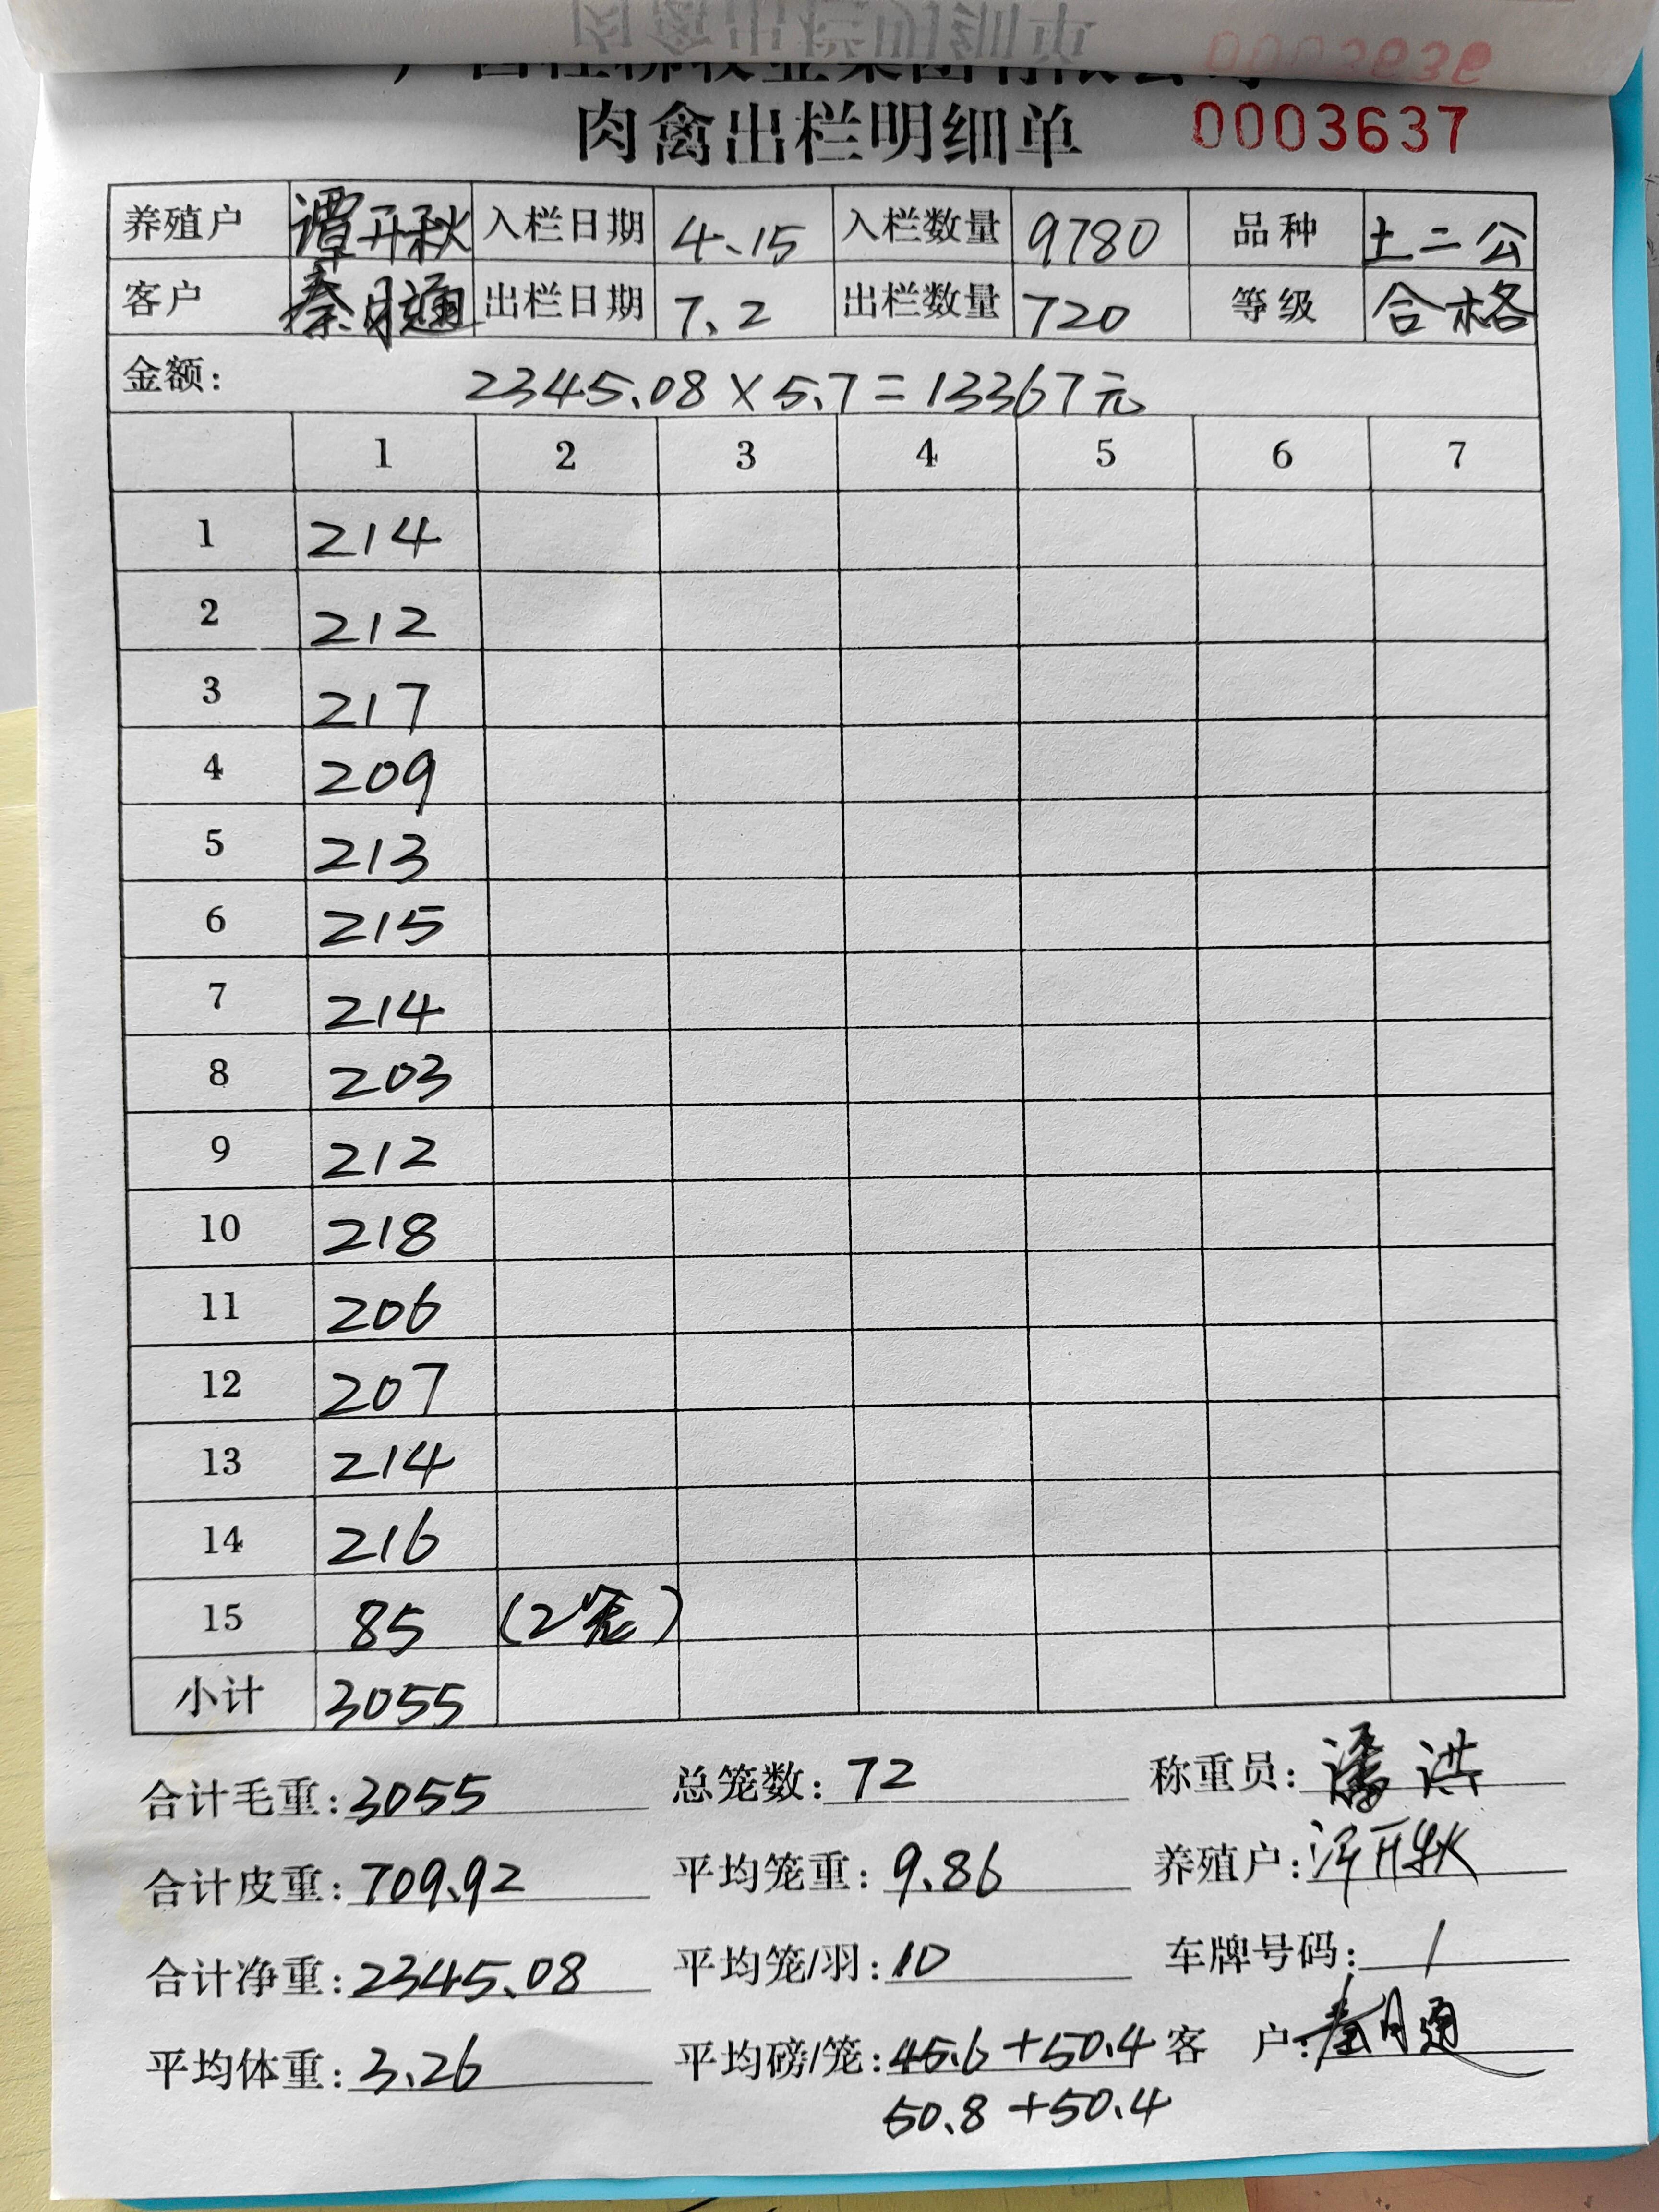 肉禽出栏明细单 0003637
养殖户 谭开秋 入栏日期 4.15 入栏数量 9780 品种 土二公
客户 秦月通 出栏日期 7.2 出栏数量 720 等级 合格
金额: 2345.08×5.7=13367元
1 2 3 4 5 6 7
1 214
2 212
3 217
4 209
5 213
6 215
7 214
8 203
9 212
10 218
11 206
12 207
13 214
14 216
15 85 (2笼)
小计 3055
合计毛重:3055 总笼数:72 称重员:潘洪
合计皮重:709.92 平均笼重:9.86 养殖户:谭开秋
合计净重:2345.08 平均笼/羽:10 车牌号码: /
平均体重:3.26 平均磅/笼:45.6+50.4 客 户:秦月通
50.8+50.4